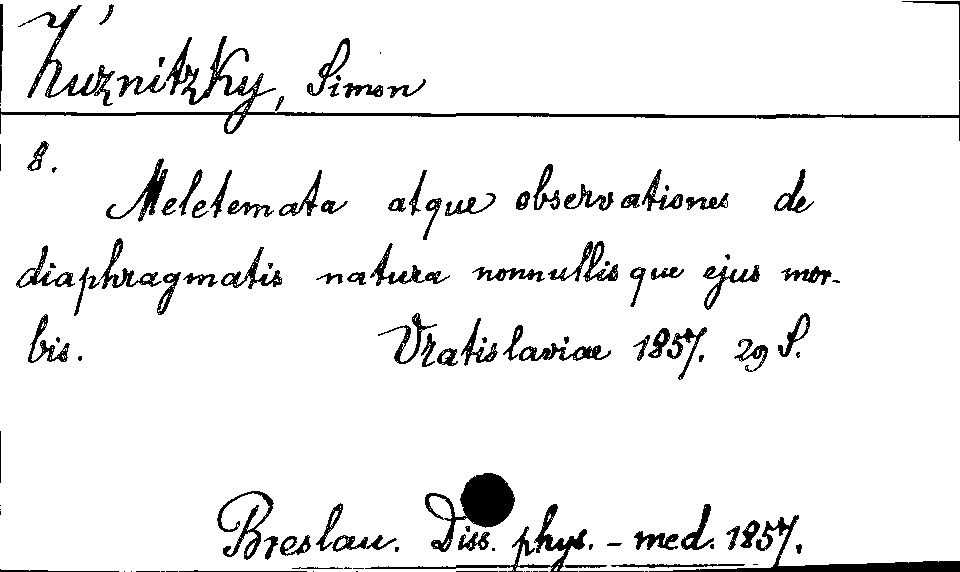 Kuznitzky, Simon
8.
Meletemata atque observationes de
diaphragmatis natura nonnullisque ejus mor-
bis. Vratislaviae 1857. 29 S.
Breslau. Diss. phys. - med. 1857.